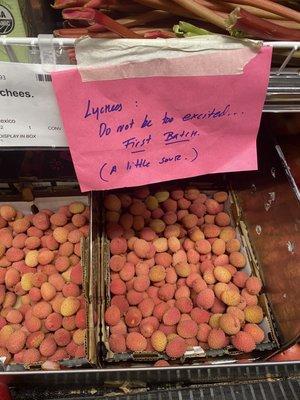 ychees.
exico
2
1
CONV
DISPLAY IN BOX
Lychees:
Do not be too excited...
First Batch.
(A little sour.)